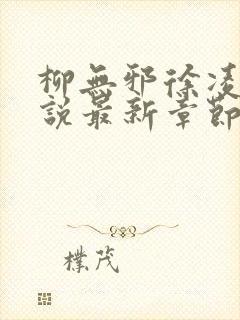 柳無邪徐凌
說最新章節
樸茂